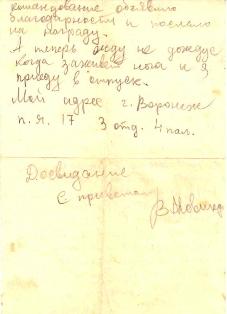 командование объявило
благодарность и послало
на награду.
А теперь жду не дождусь
когда заживет нога и я
приеду в отпуск.
Мой адрес г. Воронеж
п. я. 17 3 отд. 4 пал.
Досвидание
С приветом
В.